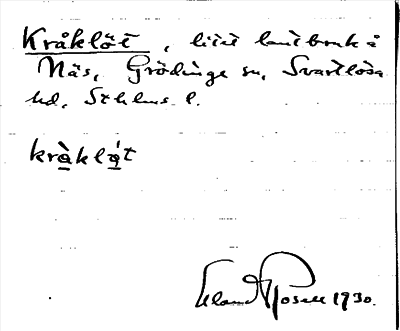 Kråklöt, litet lantbruk å
Näs, Grödinge sn, Svartlösa
hd, Sthlms l.
kràklǻt
Erland Rosell 1930.